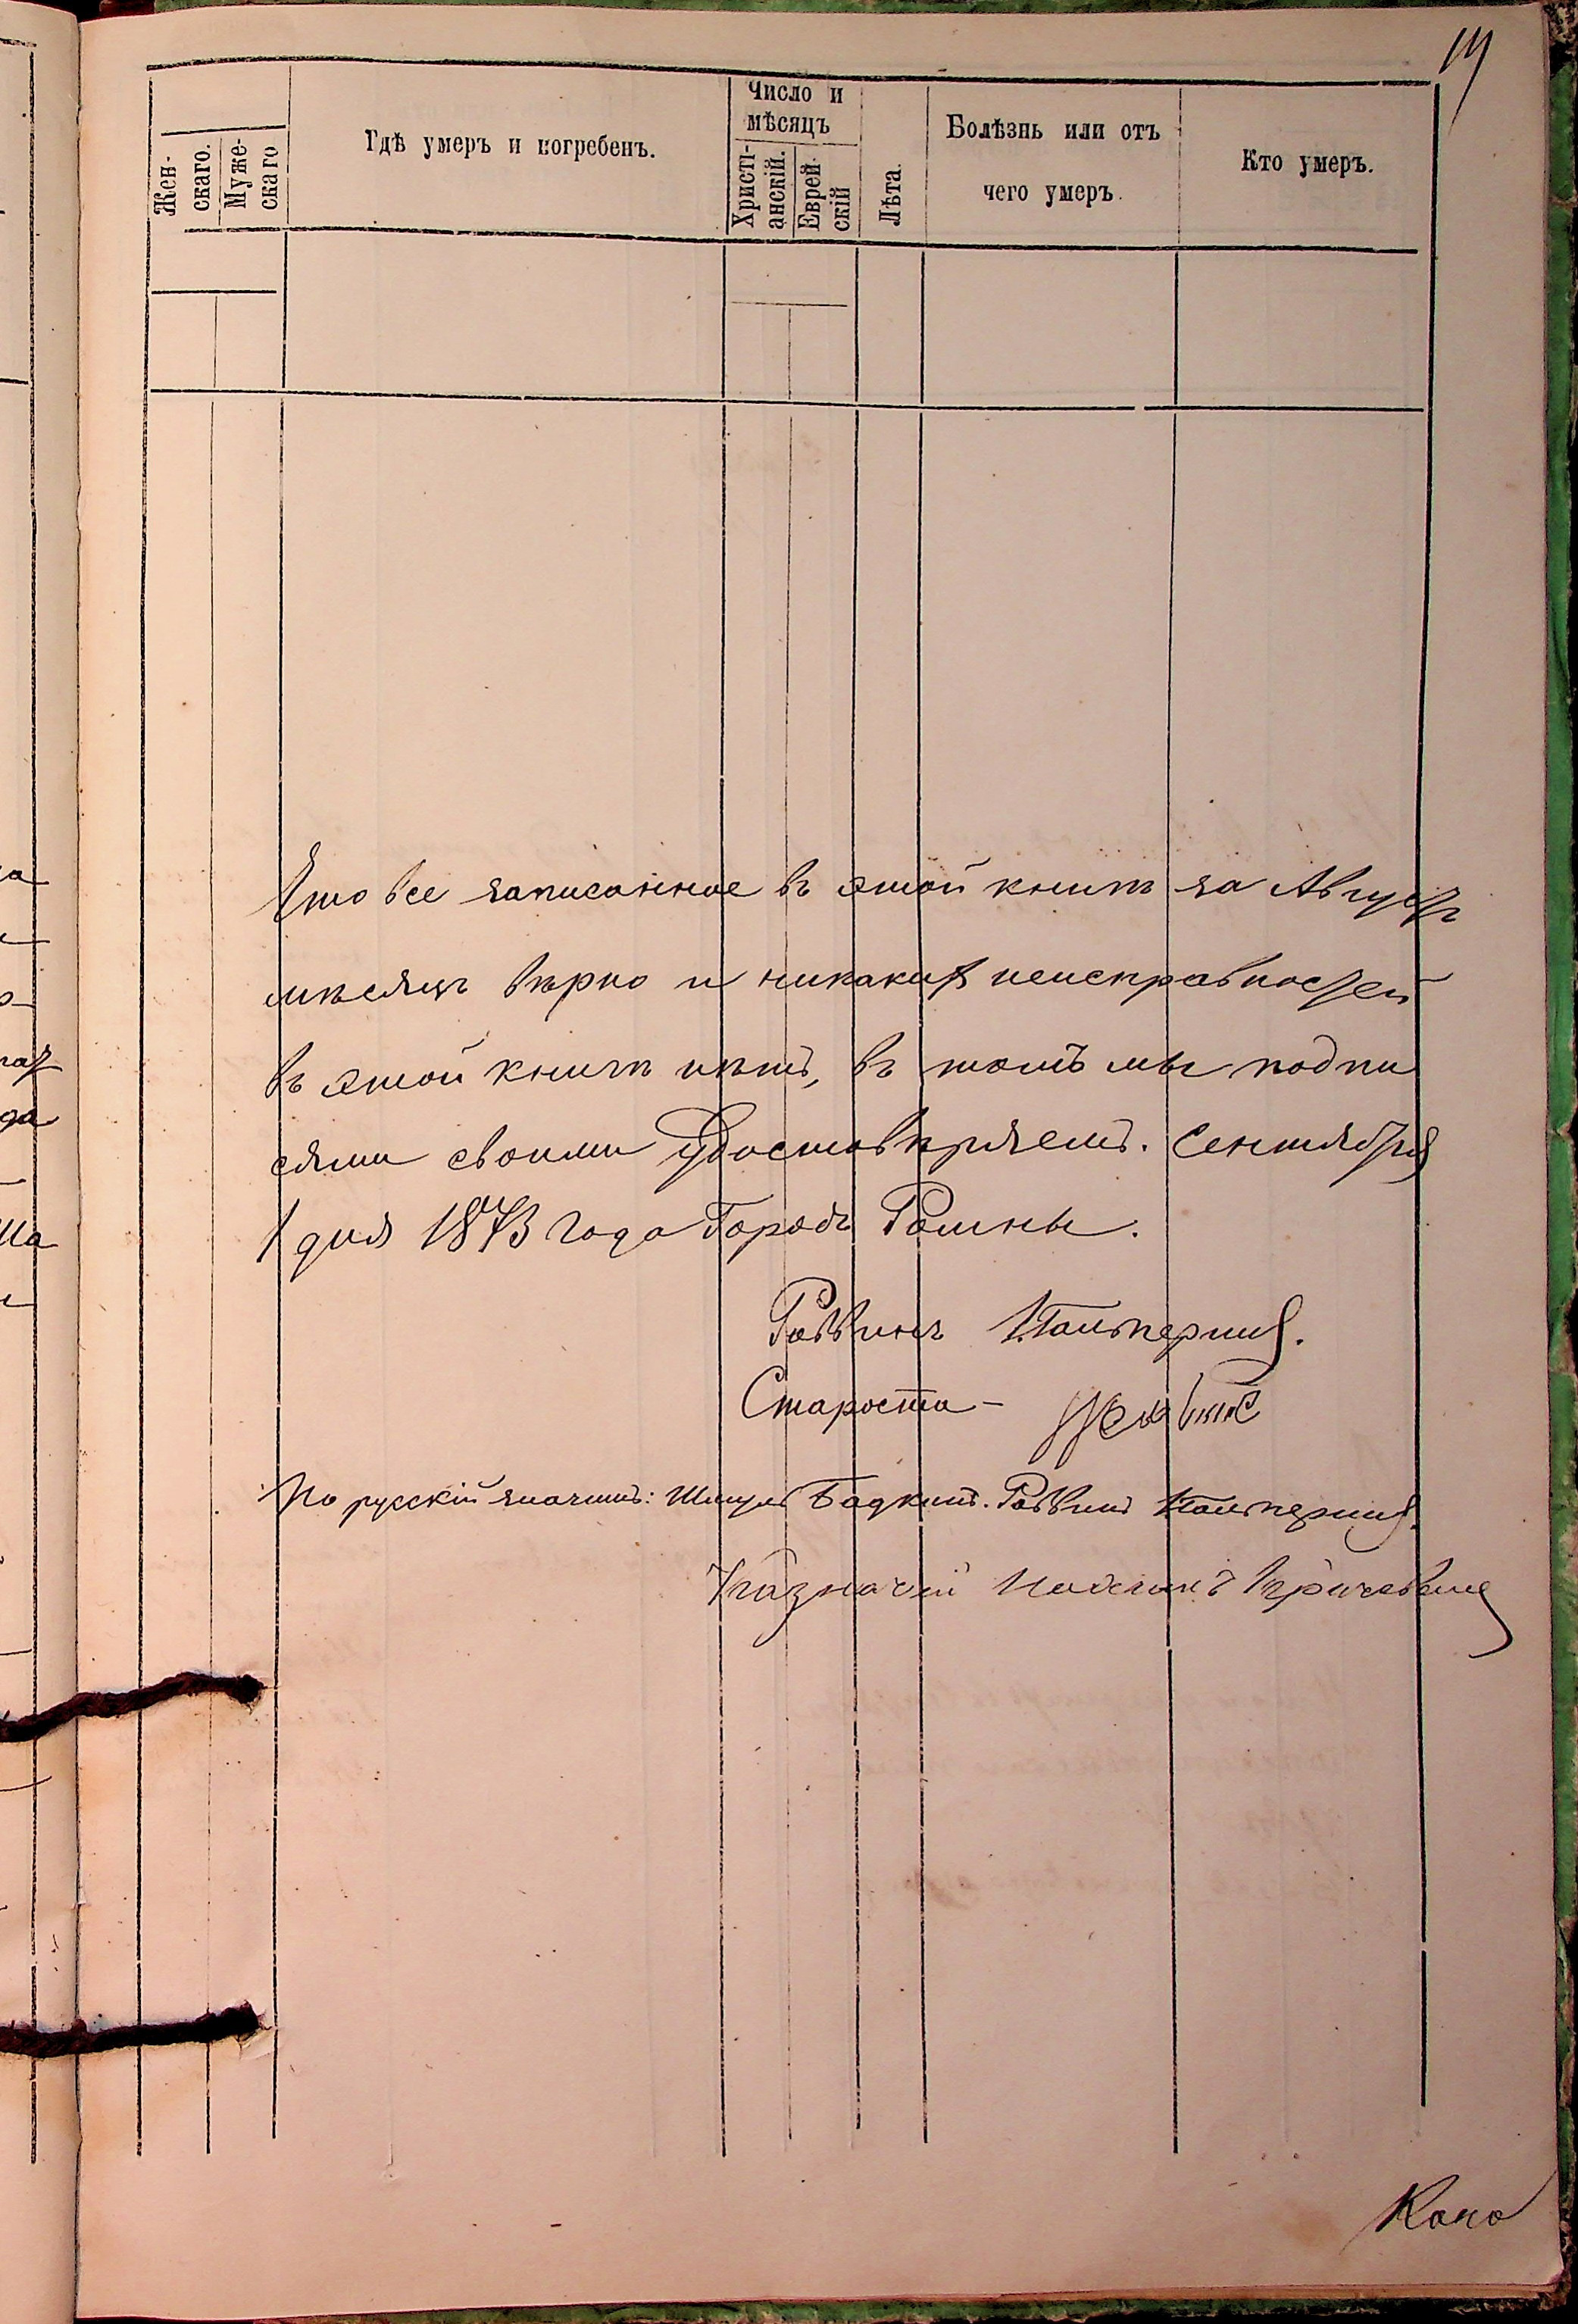 Жен-
скаго.
Муже-
скаго
Гдѣ умеръ и погребенъ.
Число и
мѣсяцъ
Христі-
анскій.
Еврей-
скій
Лѣта.
Болѣзнь или отъ
чего умеръ.
Кто умеръ.
Что все записанное въ этой книгѣ за Августъ
мѣсяцъ вѣрно и никакихъ неисправностей
въ этой книгѣ нѣтъ, въ томъ мы подпи
сями своими удостовѣряемъ. Сентября
1 дня 1873 года Городъ Ромны.
Раввинъ
Староста -
По русскій значитъ: Шмуль Бадкинъ. Раввинъ
Казначей